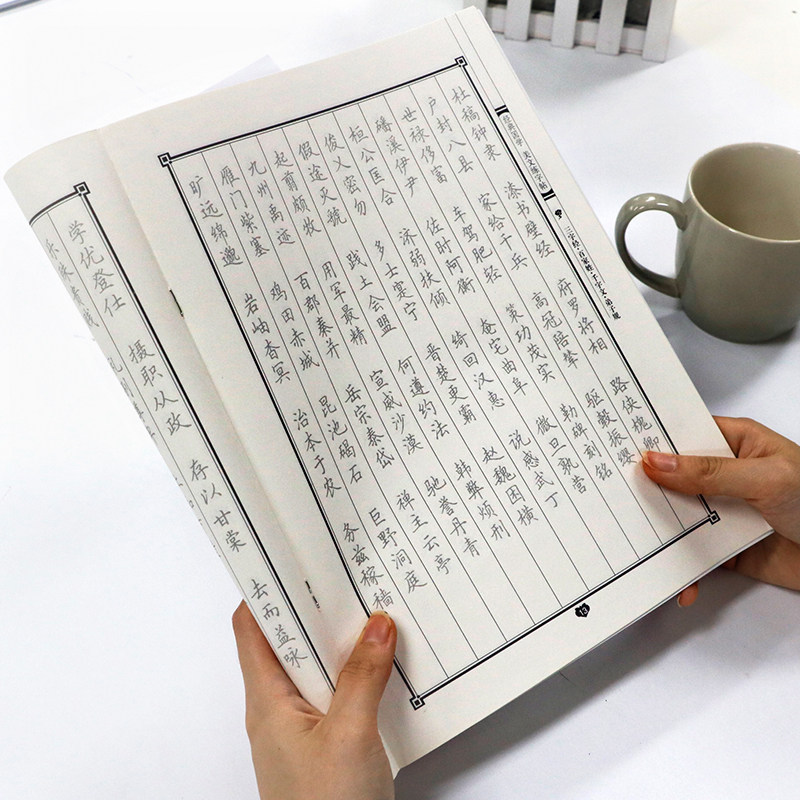 经典国学 美文练字帖
三字经·百家姓·千字文·弟子规
杜稿钟隶 漆书壁经 府罗将相 路侠槐卿
户封八县 家给千兵 高冠陪辇 驱毂振缨
世禄侈富 车驾肥轻 策功茂实 勒碑刻铭
磻溪伊尹 佐时阿衡 奄宅曲阜 微旦孰营
桓公匡合 济弱扶倾 绮回汉惠 说感武丁
俊乂密勿 多士寔宁 晋楚更霸 赵魏困横
假途灭虢 践土会盟 何遵约法 韩弊烦刑
起翦颇牧 用军最精 宣威沙漠 驰誉丹青
九州禹迹 百郡秦并 岳宗泰岱 禅主云亭
雁门紫塞 鸡田赤城 昆池碣石 巨野洞庭
旷远绵邈 岩岫杳冥 治本于农 务兹稼穑
13
学优登仕 摄职从政 存以甘棠 去而益咏